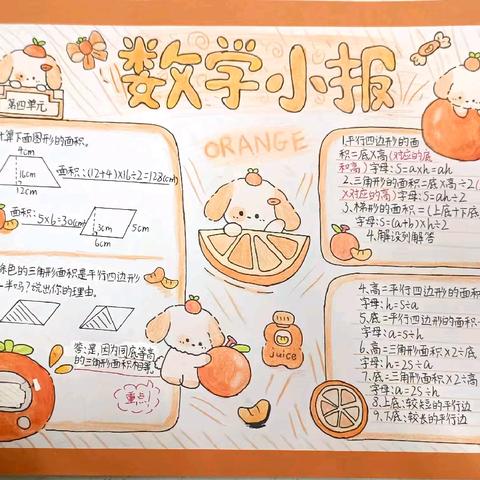 数学小报
第四单元
ORANGE
计算下面图形的面积。
4cm
16cm
12cm
面积:(12+4)×16÷2=128(cm)
面积:5×6=30(cm)
3cm
5cm
6cm
涂色的三角形面积是平行四边形
一半吗?说出你的理由。
答:是,因为同底等高
的三角形面积相等
重点
juice
1.平行四边形的面
积=底×高(对应的底
和高)字母:S=a×h=ah
2.三角形的面积=底×高÷2(
×对应的高)字母:S=ah÷2
3.梯形的面积=(上底+下底
字母:S=(a+b)×h÷2
4.解设列解答
4.高=平行四边形的面积
字母:h=S÷a
5.底=平行四边形的面积
字母:a=S÷h
6.高=三角形面积×2÷底
字母:h=2S÷a
7.底=三角形面积×2÷高
字母:a=2S÷h
8.上底:较短的平行边
9.下底:较长的平行边